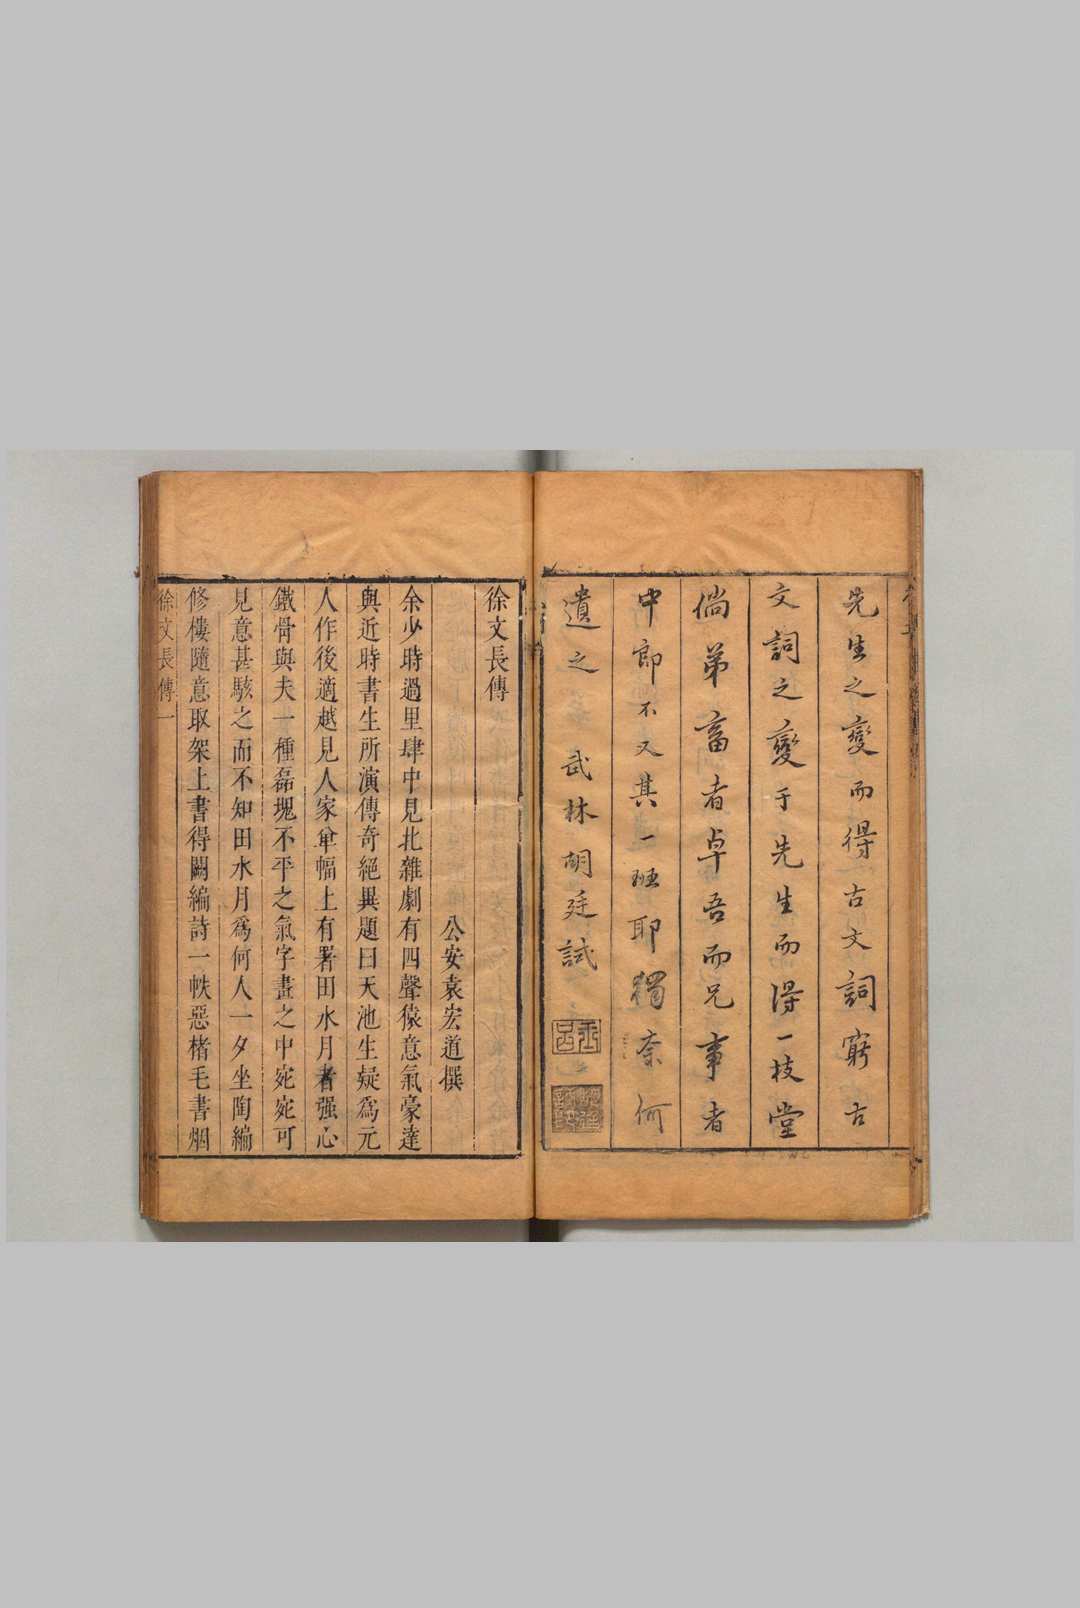 先生之變而得古文詞窮古
文詞之變于先生而得一枝堂
倘弟畜者卓吾而兄事者
中郎不又其一班耶獨奈何
遺之 武林胡廷試
徐文長傳
公安袁宏道撰
余少時過里肆中見北雜劇有四聲猿意氣豪達
與近時書生所演傳奇絕異題曰天池生疑爲元
人作後適越見人家单幅上有署田水月者强心
鐵骨與夫一種磊塊不平之氣字畫之中宛宛可
見意甚駭之而不知田水月爲何人一夕坐陶編
修樓隨意取架上書得闕編詩一帙惡楮毛書烟
徐文長傳 一